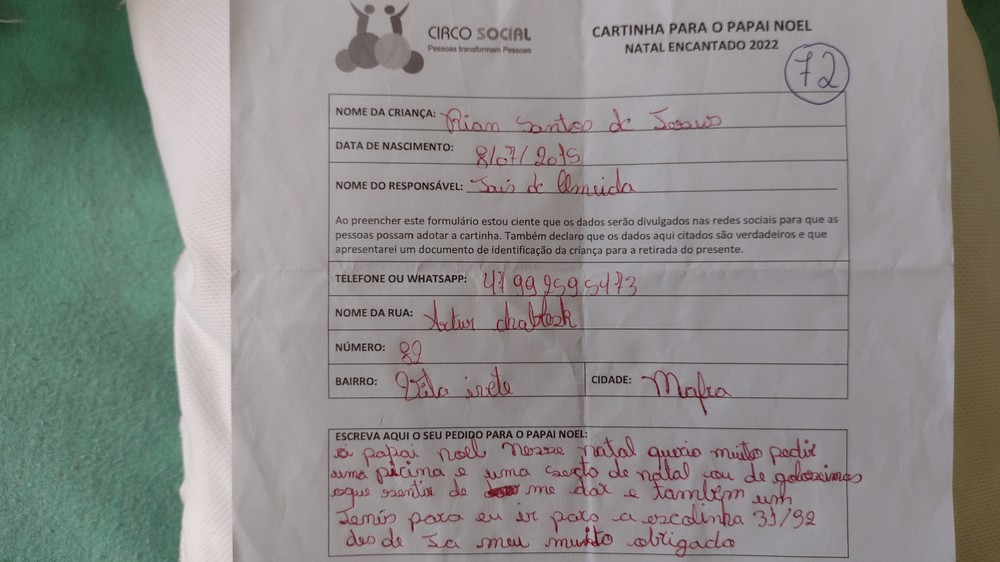 CIRCO SOCIAL
Pessoas transformem Pessoas
CARTINHA PARA O PAPAI NOEL
NATAL ENCANTADO 2022
72
NOME DA CRIANÇA: Rian Santos de Jesus
DATA DE NASCIMENTO: 8/07/2015
NOME DO RESPONSÁVEL: Jais de Almeida
Ao preencher este formulário estou ciente que os dados serão divulgados nas redes sociais para que as
pessoas possam adotar a cartinha. Também declaro que os dados aqui citados são verdadeiros e que
apresentarei um documento de identificação da criança para a retirada do presente.
TELEFONE OU WHATSAPP: 47 99 9595473
NOME DA RUA: Artur
NÚMERO: 82
BAIRRO: Vila CIDADE: Mafra
ESCREVA AQUI O SEU PEDIDO PARA O PAPAI NOEL:
papai noel nesse natal queria muito pedir
uma picina e uma sexto de natal ou de goloseimas
oque sentir de me dar e também um
Tenis para eu ir para a escolinha 31/92
des de Ja meu muito obrigado